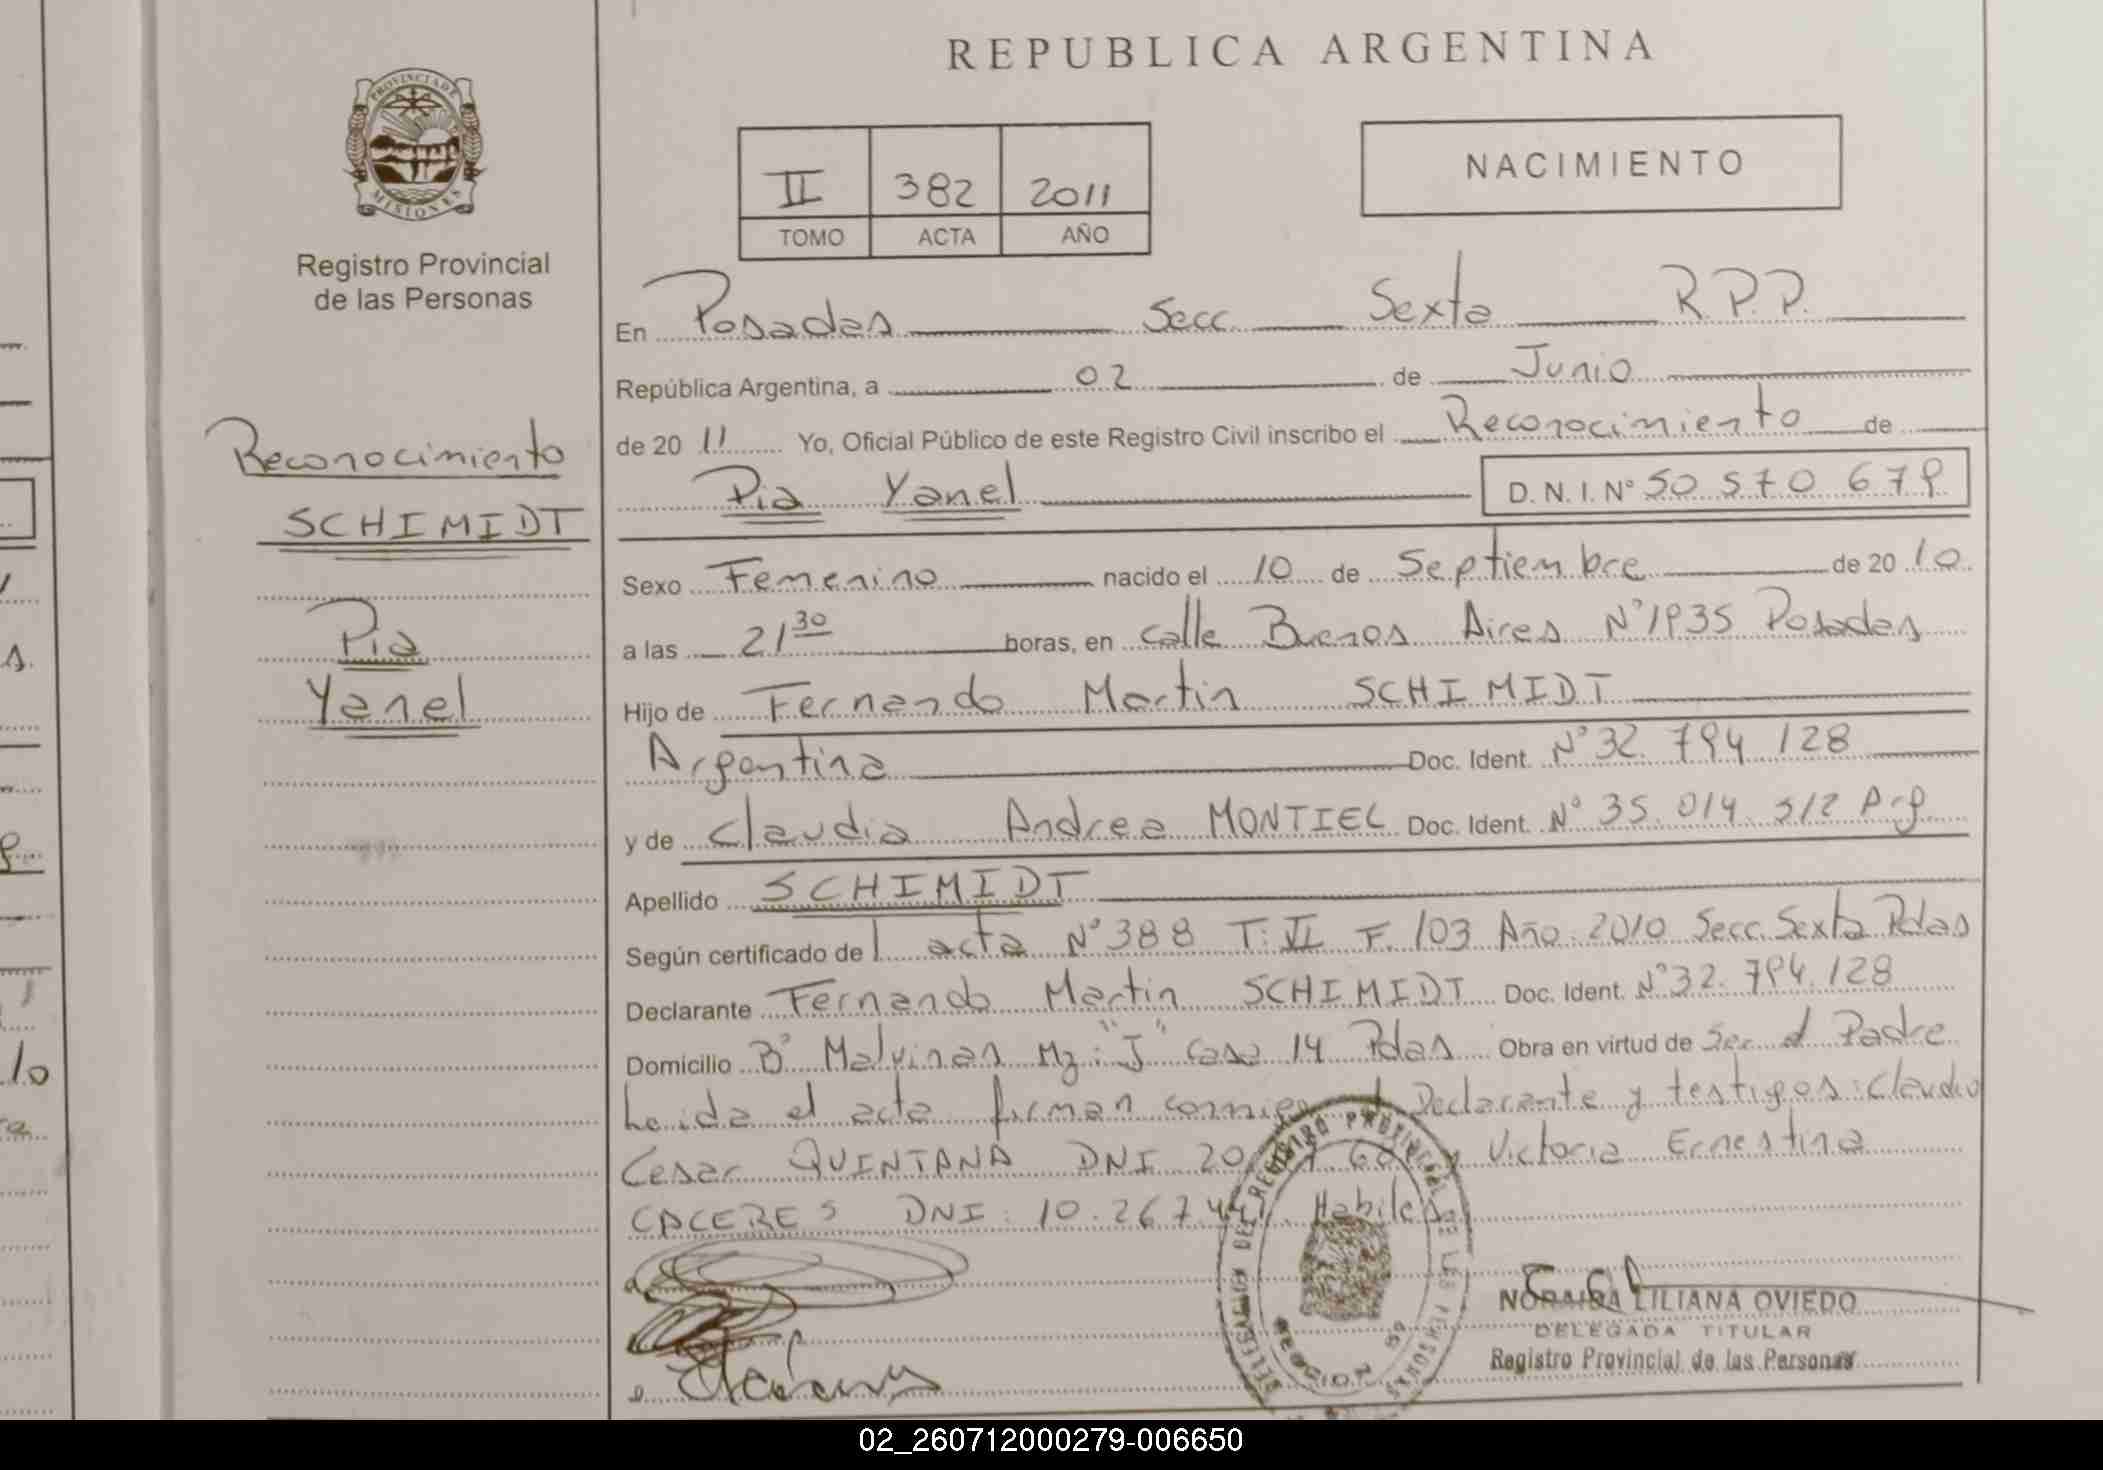 REPUBLICA ARGENTINA
PROVINCIA DE
MISIONES
Registro Provincial
de las Personas
II 382 2011
TOMO ACTA AÑO
NACIMIENTO
Reconocimiento
SCHIMIDT
Pia
Yanel
En Posadas Secc Sexta R.P.P.
República Argentina, a 02 de Junio
de 2011 Yo, Oficial Público de este Registro Civil inscribo el Reconocimiento de
Pia Yanel D.N.I. Nº 50 570 679
Sexo Femenino nacido el 10 de Septiembre de 2010
a las 21 30 horas, en calle Buenos Aires Nº 1935 Posadas
Hijo de Fernando Martin SCHIMIDT
Argentina Doc. Ident. Nº 32.794.128
y de Claudia Andrea MONTIEL Doc. Ident. Nº 35.014.512 Arg
Apellido SCHIMIDT
Según certificado de acta Nº 388 T: II F. 103 Año 2010 Secc. Sexta Pdas
Declarante Fernando Martin SCHIMIDT Doc. Ident. Nº 32.794.128
Domicilio Bº Malvinas Mz: "J" casa 14 Pdas Obra en virtud de Ser el Padre
Leida el acta firman conmigo el Declarante y testigos: Claudio
Cesar QUINTANA DNI 20 y Victoria Ernestina
CACERES DNI: 10.267.4 Habiles
DELEGACION DEL REGISTRO PROVINCIAL DE LAS PERSONAS
NORAIDA LILIANA OVIEDO
DELEGADA TITULAR
Registro Provincial de las Personas
02_260712000279-006650